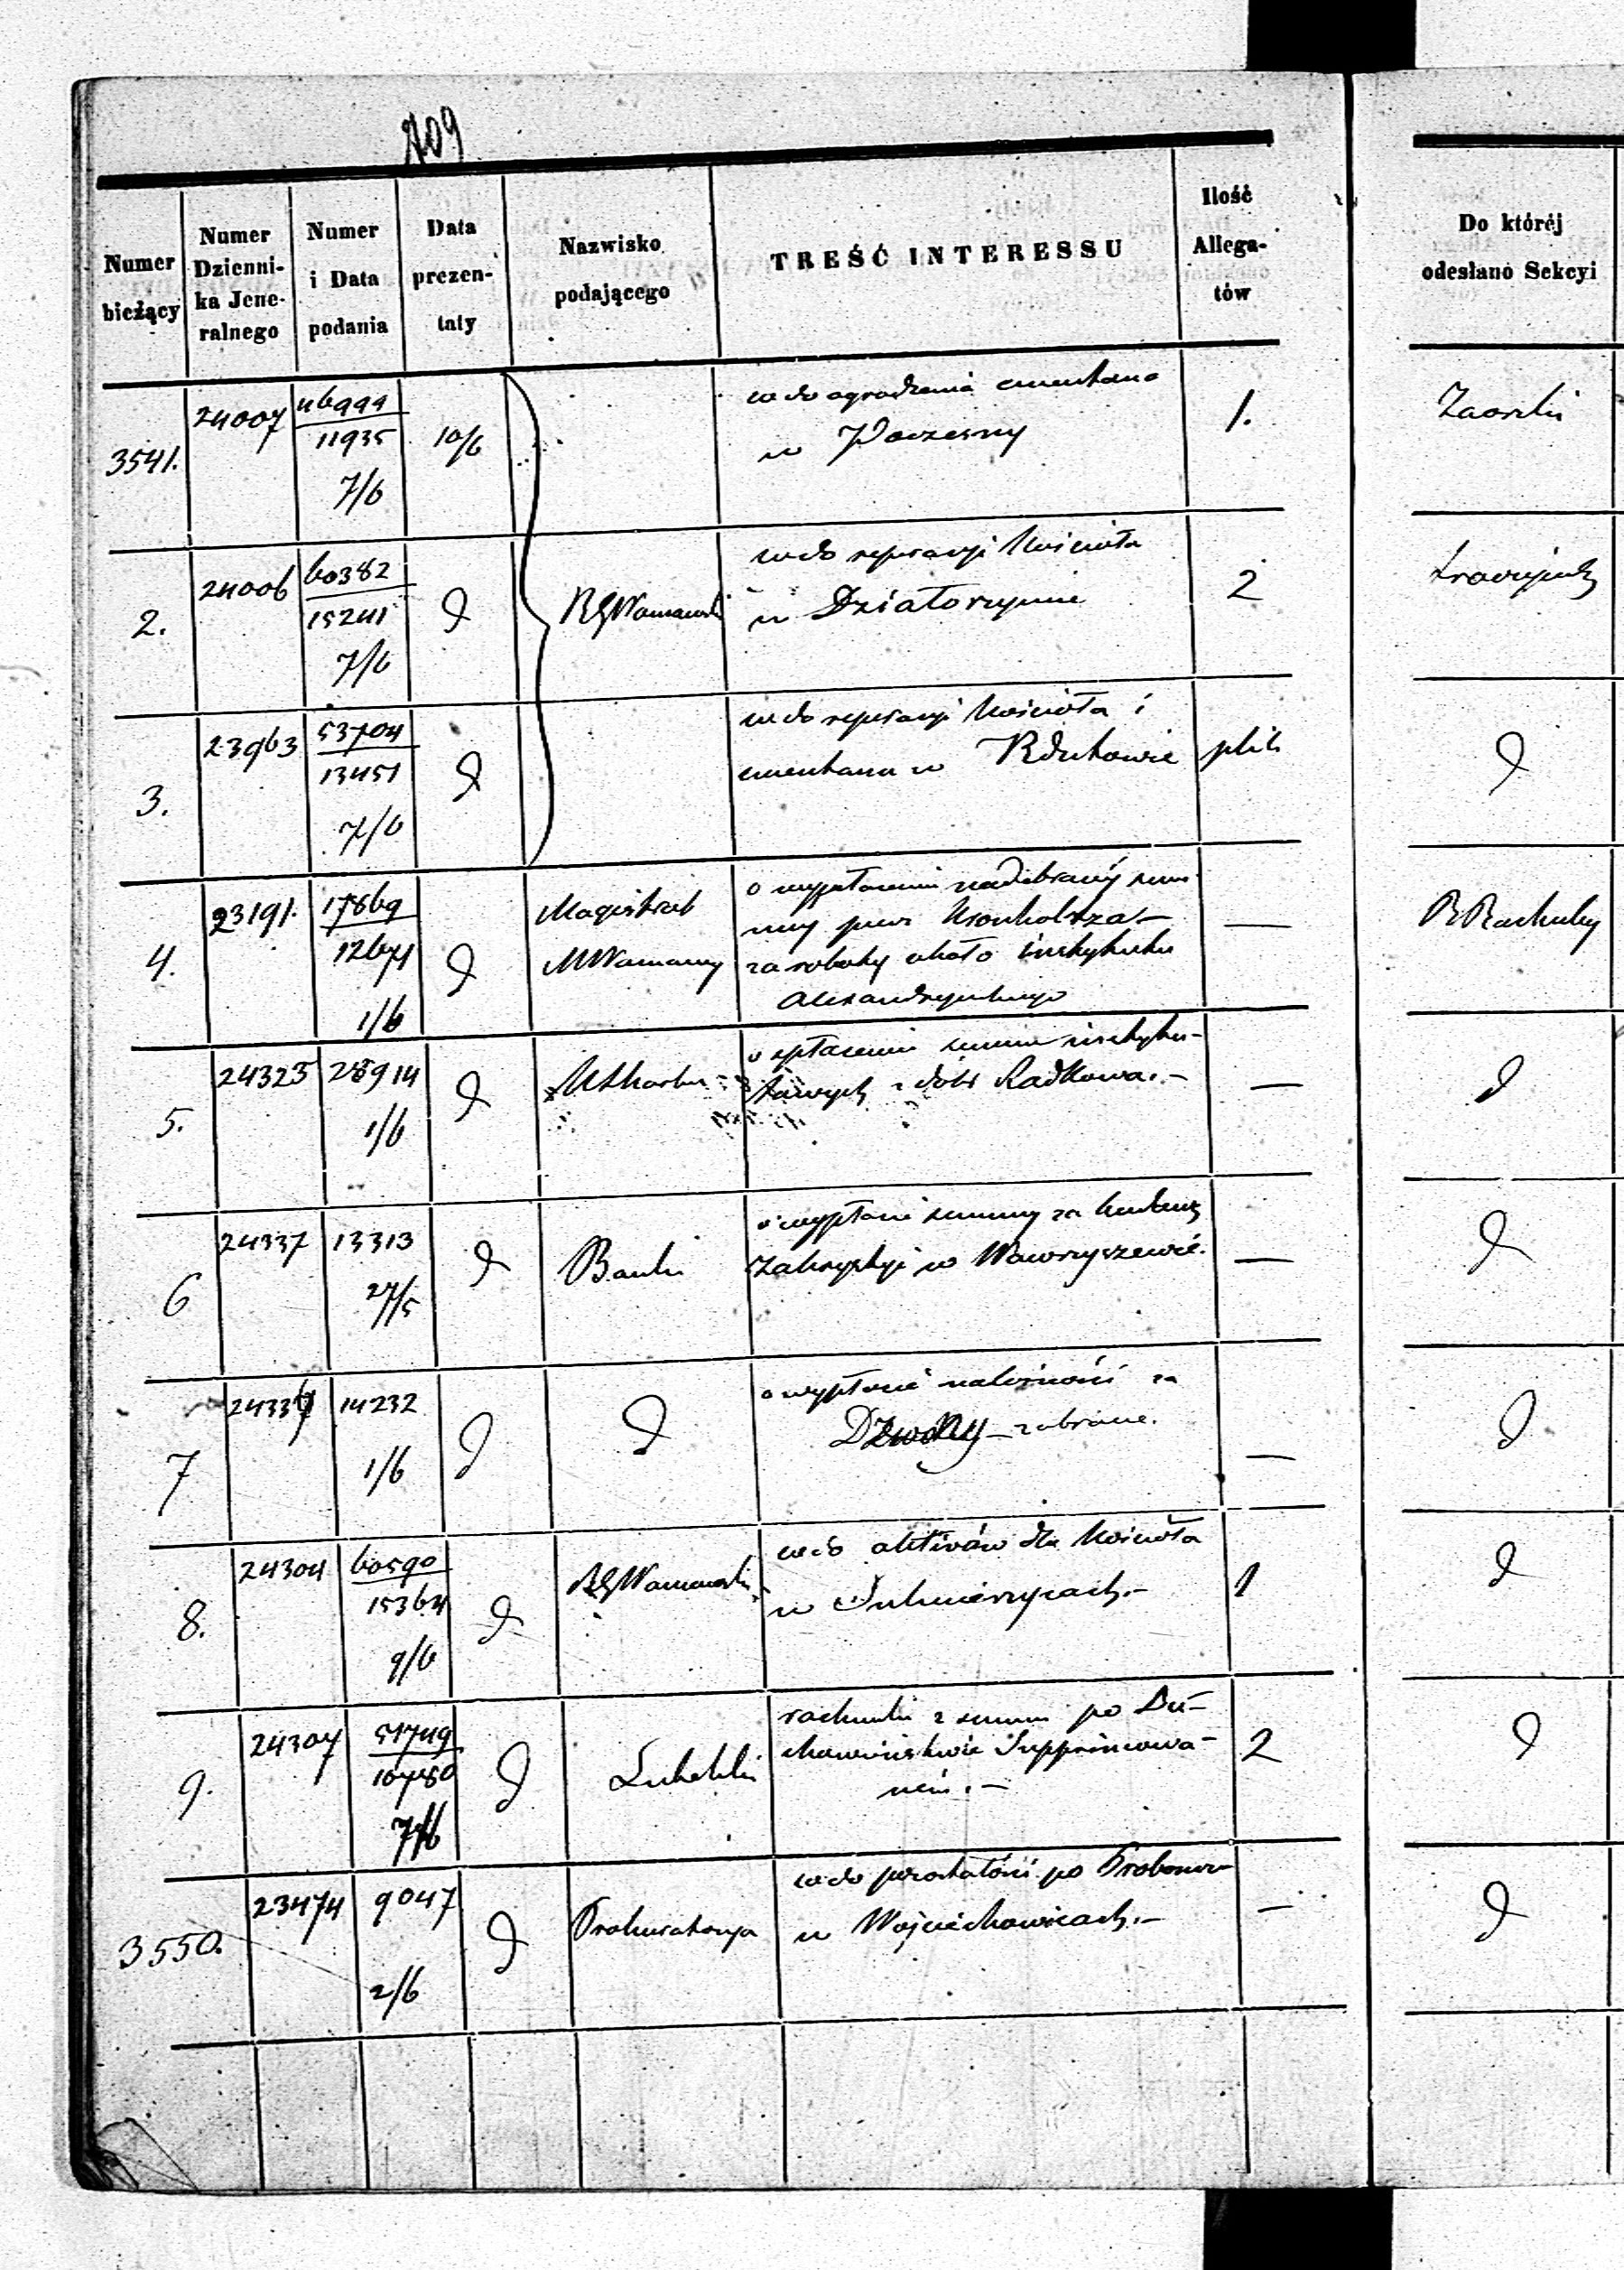 709
Numer bieżący
Numer Dzienni-ka Jene-ralnego
Numer i Data podania
Data prezen-taty
Nazwisko podającego
TREŚĆ INTERESSU
Ilość Allega-tów
Do któréj odesłano Sekcyi
3541.
24007
11935
7/6
10/6
w do ogrodzenia cmentarza
w Poczesny
1.
2.
24006
60382
15241
7/6
d
RGWarszawski
w do reperacyi Kościoła
w Działoszynie
2
3.
23963
53704
13451
7/6
d
w do reperacyi Kościoła i
cmentarza w Rdutowie
plik
d
4.
23191.
17869
12671
1/6
d
Magistrat
MWarszawy
o wypłacenie nadebranej sum
my przez
za roboty około instytutu
Alexandryjskiego
—
5.
24325
28914
1/6
d
o spłacenie summ instytu-
towych z dóbr Radkowa.—
—
d
6
24337
13313
27/5
d
Banku
o wypłacie summy za
Zakrystyi w Wawrzyszewie.
—
d
7
14232
1/6
d
d
o wypłacie należności za
Dzwony — zabrane.
—
d
8.
24304
60590
15364
9/6
d
RGWarszawski
w do aktivów dla Kościoła
w Sulmierzycach.—
1
d
9.
24307
51749
10780
7/6
d
Lubelski
rachunki z summ po Du-
chowieństwie Supprimowa-
nem.—
2
d
3550.
23474
9047
2/6
d
Prokuratorya
w do pozostałości po
w Wojciechowicach.—
—
d